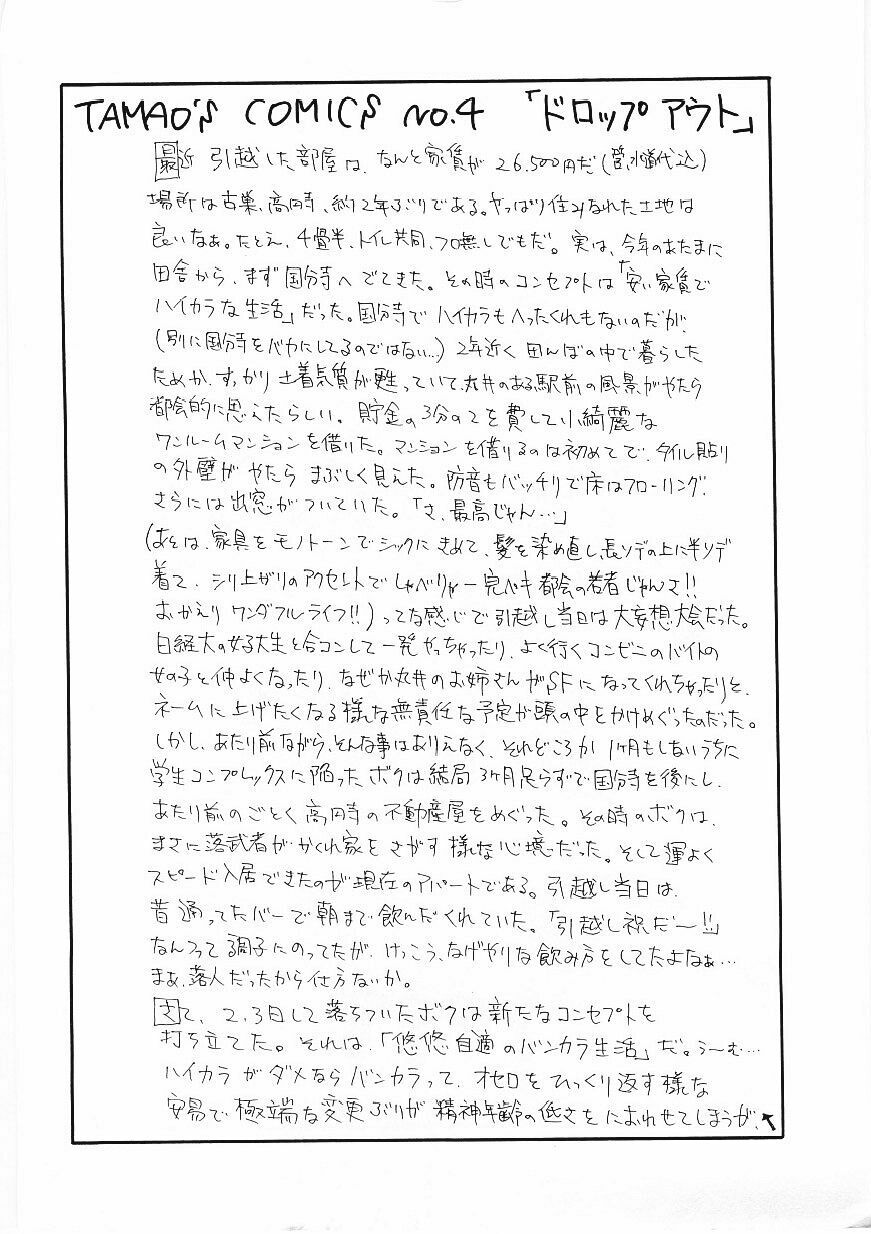 TAMAO'S COMICS NO.4 「ドロップアウト」
最近 引越した部屋は、なんと家賃が 26.500円だ(管、水道代込)
場所は古巣、高円寺、約2年ぶりである。やっぱり住みなれた土地は
良いなぁ。たとえ、4畳半、トイレ共同、フロ無しでもだ。実は、今年のあたまに
田舎から、まず国分寺へでてきた。その時のコンセプトは「安い家賃で
ハイカラな生活」だった。国分寺でハイカラもへったくれもないのだが、
(別に国分寺をバカにしてるのではない…)2年近く田んぼの中で暮らした
ためか、すっかり土着気質が甦っていて、丸井のある駅前の風景がやたら
都会的に思えたらしい。貯金の3分の2を費して小綺麗な
ワンルームマンションを借りた。マンションを借りるのは初めてで、タイル貼り
の外壁がやたらまぶしく見えた。防音もバッチリで床はフローリング、
さらには出窓がついていた。「さ、最高じゃん…」
(あとは、家具をモノトーンでシックにきめて、髪を染め直し、長ソデの上に半ソデ
着て、シリ上がりのアクセントでしゃべりゃー完ペキ都会の若者じゃんさ!!
おかえりワンダフルライフ!!)ってな感じで引越し当日は大妄想大会だった。
日経大の女子大生と合コンして一発やっちゃったり、よく行くコンビニのバイトの
女の子と仲よくなったり、なぜか丸井のお姉さんがSFになってくれちゃったりと、
ネームに上げたくなる様な無責任な予定が頭の中をかけめぐったのだった。
しかし、あたり前ながら、そんな事はありえなく、それどころか1ヶ月もしないうちに
学生コンプレックスに陥ったボクは結局3ヶ月足らずで国分寺を後にし、
あたり前のごとく高円寺の不動産屋をめぐった。その時のボクは、
まさに落武者がかくれ家をさがす様な心境だった。そして運よく
スピード入居できたのが現在のアパートである。引越し当日は、
昔通ってたバーで朝まで飲んだくれていた。「引越し祝だ〜!!」
なんつって調子にのってたが、けっこう、なげやりな飲み方をしてたよなぁ…
まぁ、落人だったから仕方ないか。
さて、2、3日して落ちついたボクは新たなコンセプトを
打ち立てた。それは、「悠悠自適のバンカラ生活」だ。う〜む…
ハイカラがダメならバンカラって、オセロをひっくり返す様な
安易で極端な変更ぶりが精神年齢の低さをにおわせてしまうが、↖